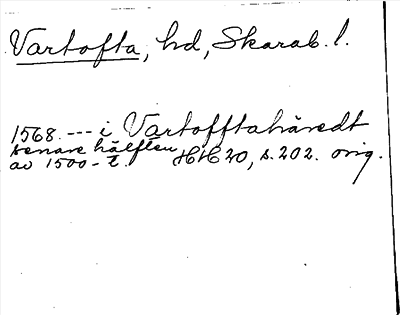 Vartofta, hd, Skarab. l.
1568. --- i Vartofftahäredt
senare hälften
av 1500-t. HH 20, s. 202. orig.